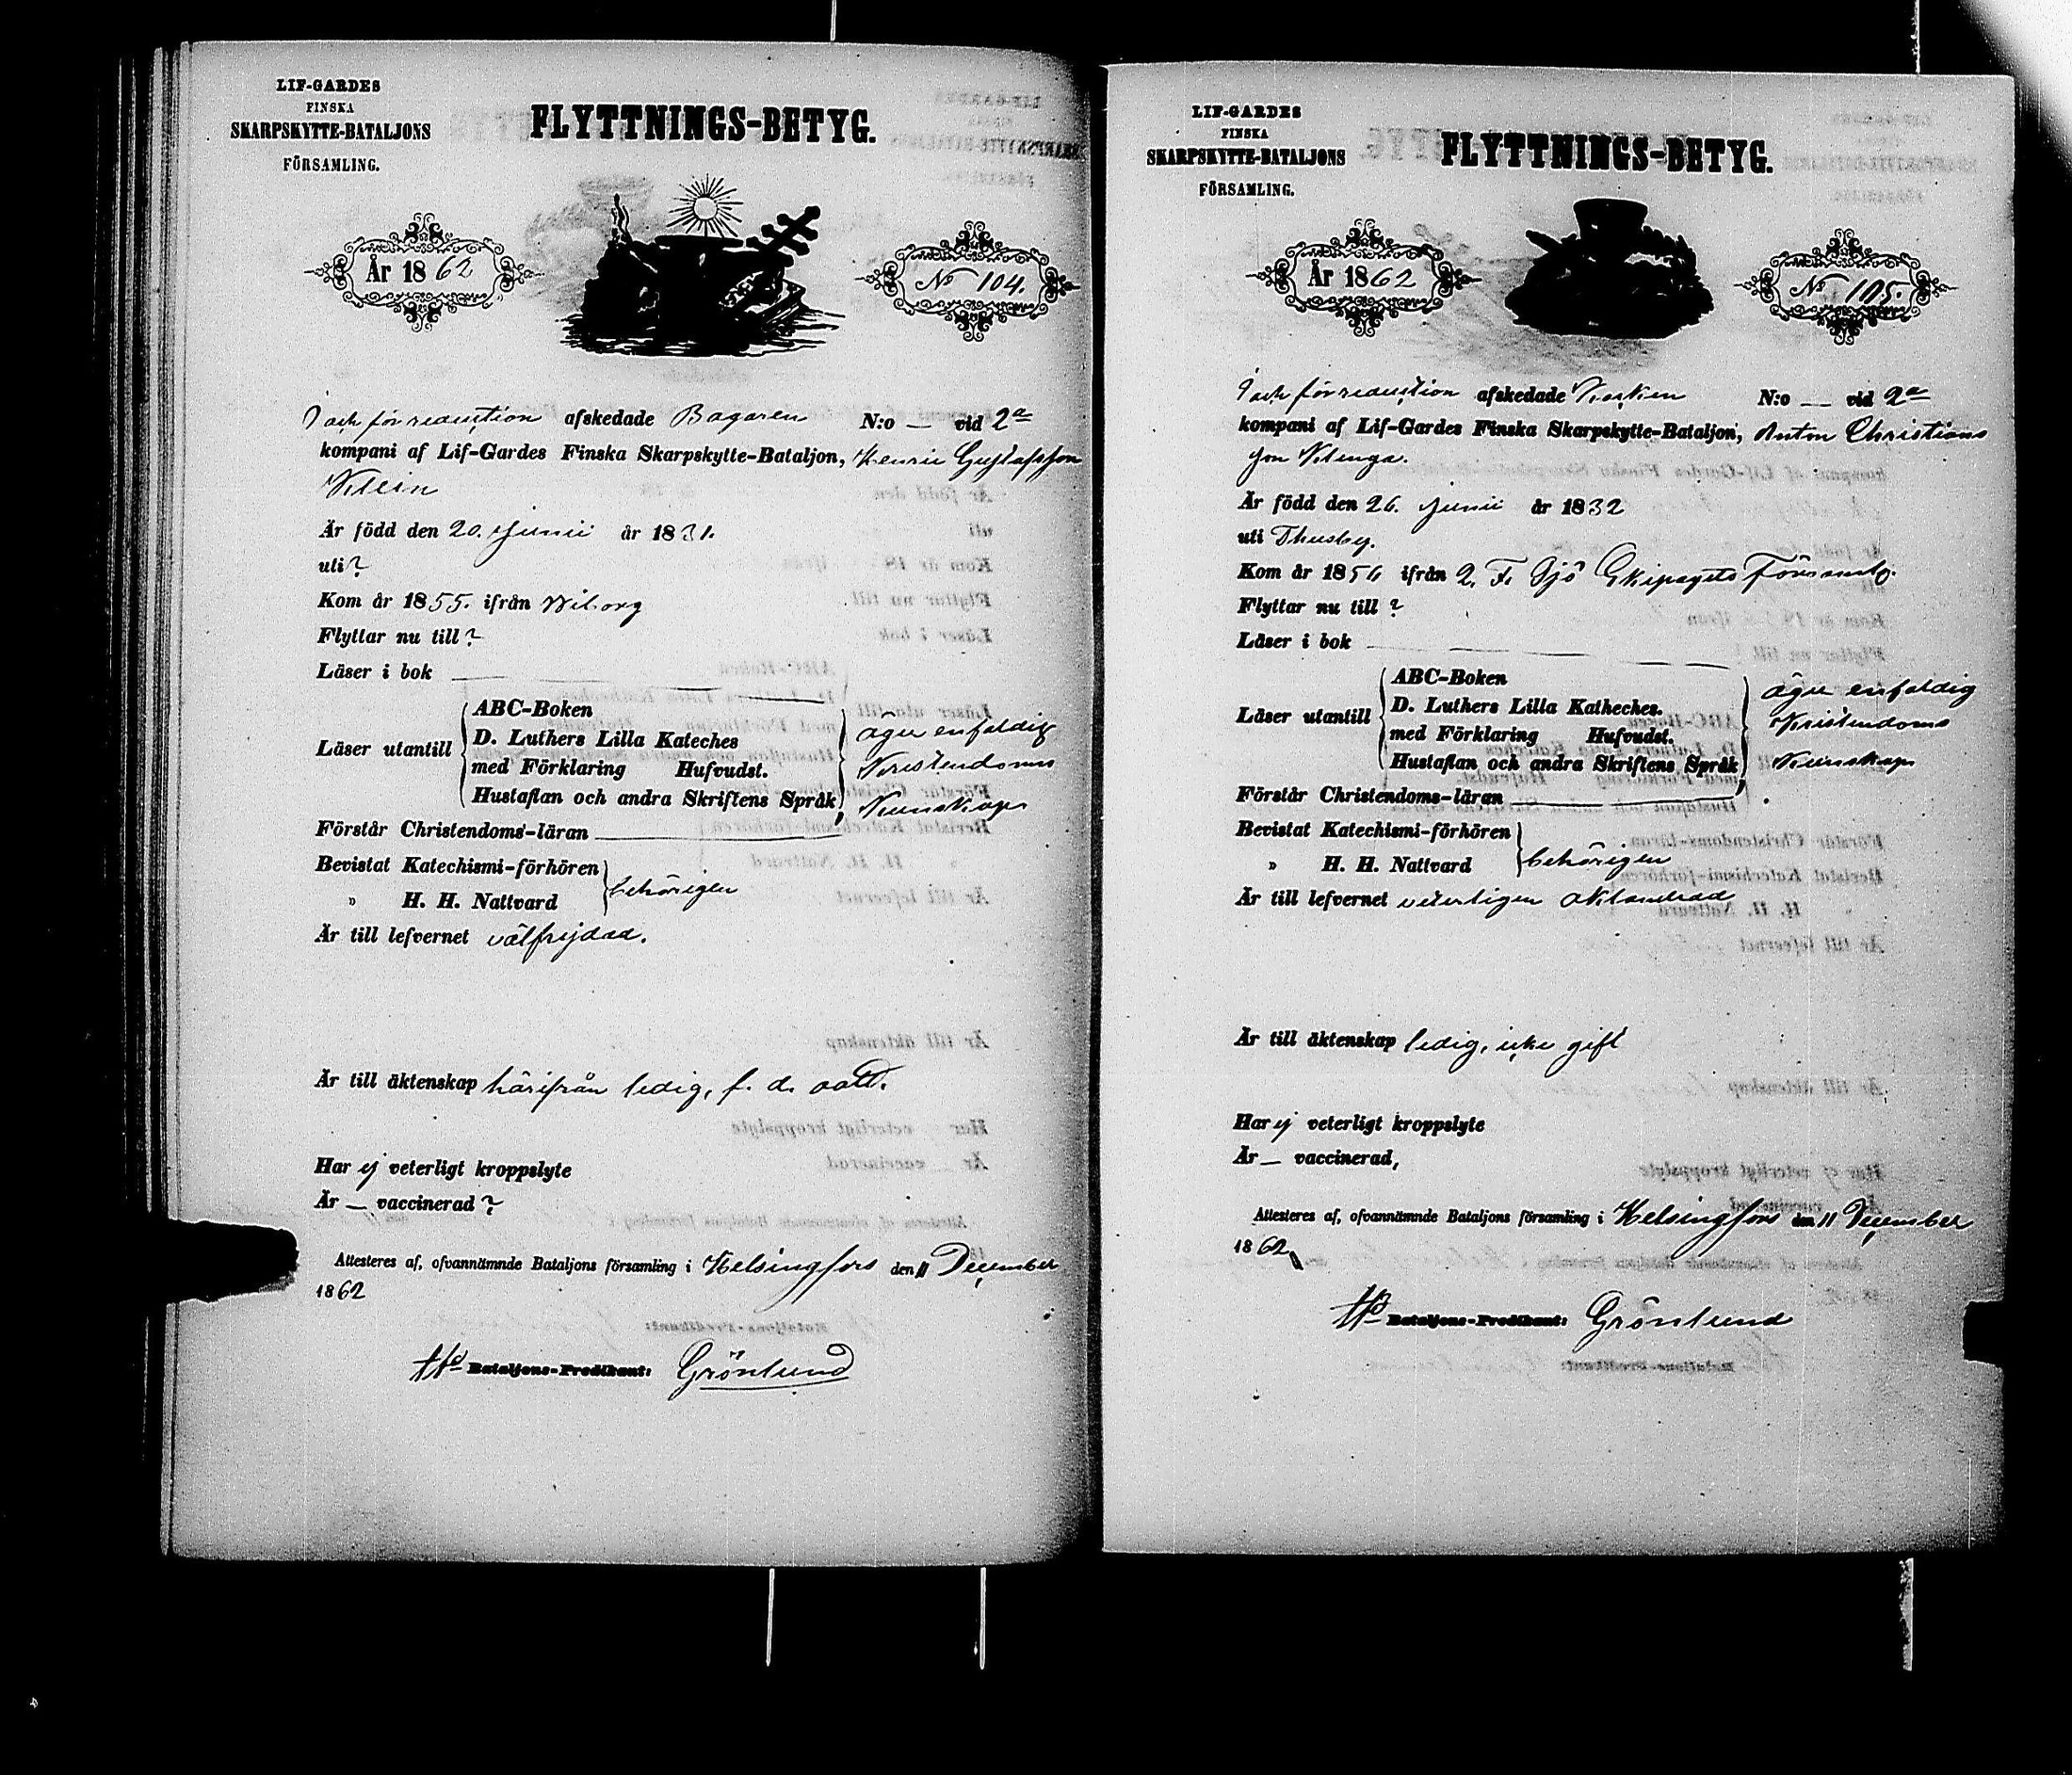 LIF-GARDES
FINSKA
SKARPSKYTTE-BATALJONS
FÖRSAMLING.
FLYTTNINGS-BETYG.
År 1862
No 104.
I och för reduction afskedade Bagaren N:o — vid 2a
kompani af Lif-Gardes Finska Skarpskytte-Bataljon, Henric Gustafsson
Klein
Är född den 20. Junii år 1831.
uti?
Kom år 1855. ifrån Wiborg
Flyttar nu till?
Läser i bok
ABC-Boken
D. Luthers Lilla Kateches
Läser utantill
med Förklaring Hufvudst.
Hustaflan och andra Skriftens Språk,
äger enfaldig
Kristendoms
Kunskap
Förstår Christendoms-läran
Bevistat Katechismi-förhören
„ H. H. Nattvard
behörigen
Är till lefvernet välfrejdad.
Är till äktenskap härifrån ledig, f. d.
Har ej veterligt kroppslyte
Är — vaccinerad?
Attesteres af, ofvannämnde Bataljons församling i Helsingfors den 11 December
1862
Bataljons-Predikant: Grönlund
LIF-GARDES
FINSKA
SKARPSKYTTE-BATALJONS
FÖRSAMLING.
FLYTTNINGS-BETYG.
År 1862
No 105.
I och för reduction afskedade Kocken N:o — vid 2a
kompani af Lif-Gardes Finska Skarpskytte-Bataljon, Anton Christians
son Klenga.
Är född den 26. Junii år 1832
uti Thusby.
Kom år 1856 ifrån 2. F. Sjö Ekipagets Församl.
Flyttar nu till?
Läser i bok
ABC-Boken
D. Luthers Lilla Katheches.
Läser utantill
med Förklaring Hufvudst.
Hustaflan och andra Skriftens Språk,
äger enfaldig
Kristendoms
Kunskap
Förstår Christendoms-läran
Bevistat Katechismi-förhören
„ H. H. Nattvard
behörigen
Är till lefvernet veterligen oklandrad
Är till äktenskap ledig, icke gift
Har ej veterligt kroppslyte
Är — vaccinerad,
Attesteres af, ofvannämnde Bataljons församling i Helsingfors den 11 December
1862
Bataljons-Predikant: Grönlund